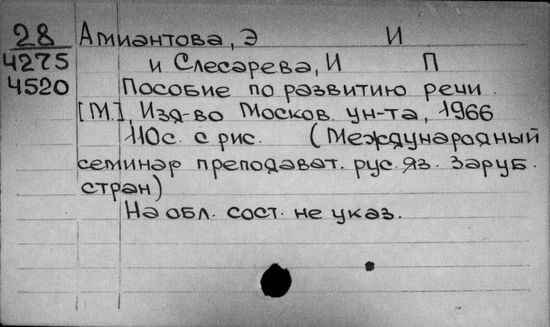 28 Амиантова, Э И
4275 и Слесарева, И П
4520 Пособие по развитию речи.
[М.], Изд-во Москов. ун-та, 1966
110с. с рис. (Международный
семинар преподават. рус. яз. заруб.
стран)
На обл. сост. не указ.